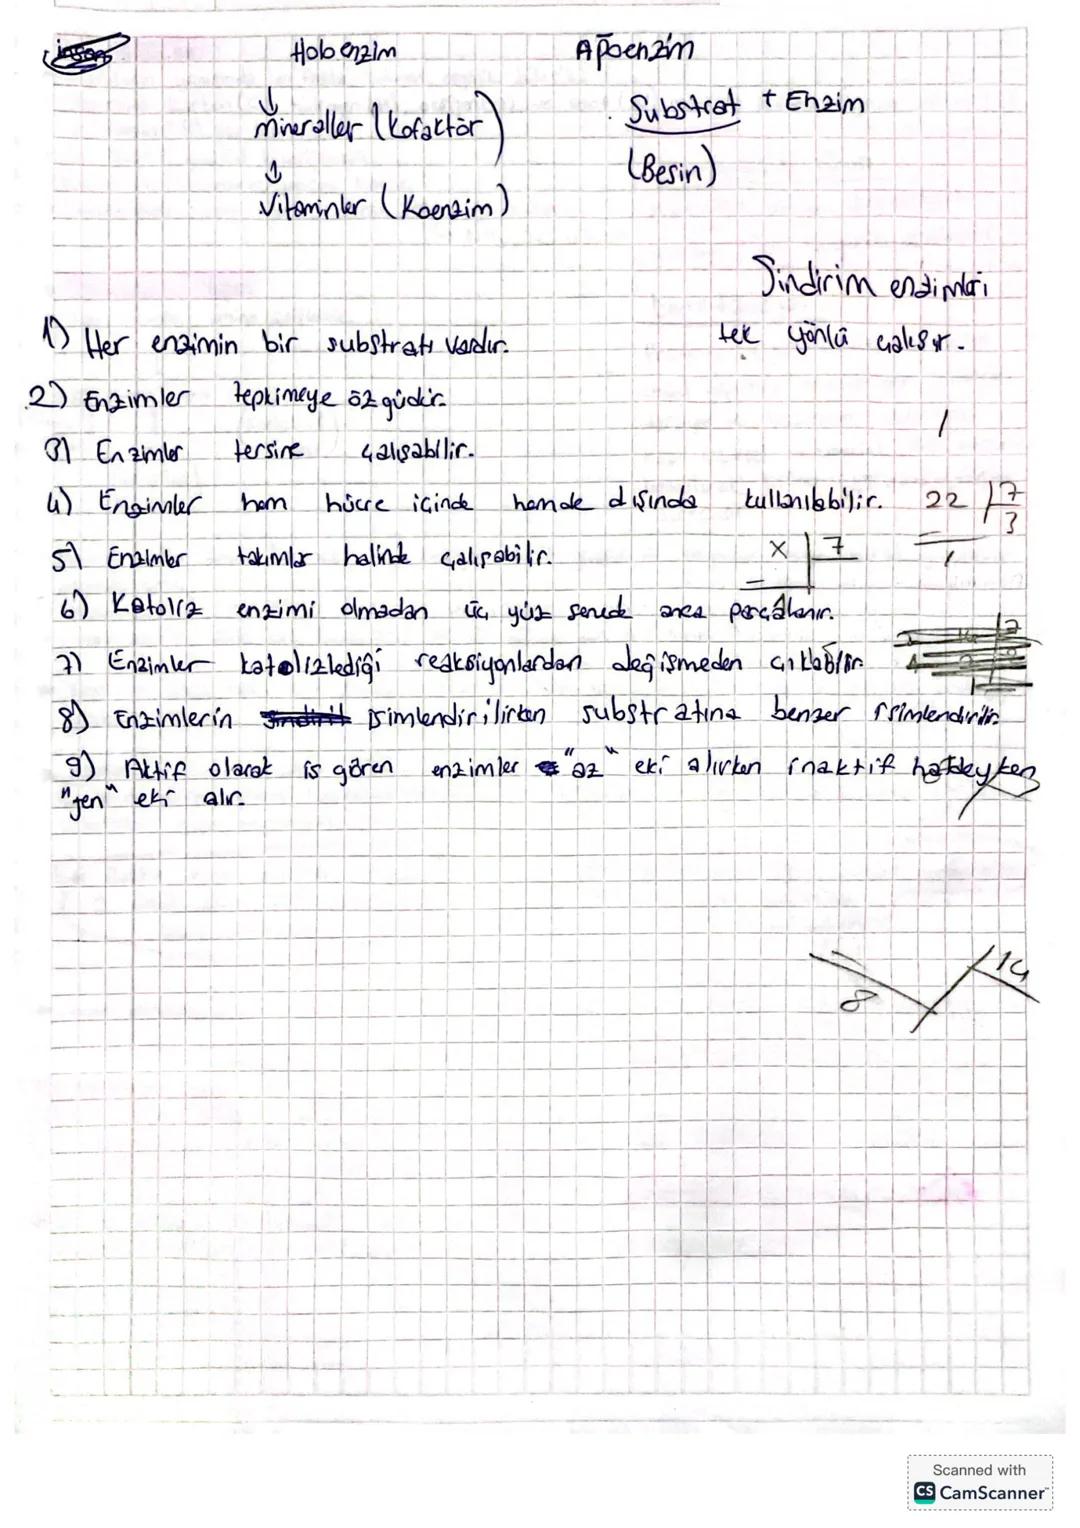 Holoenzim Apoenzim
↓
Mineraller (Kofaktör)
Substrat + Enzim
(Besin)
↓
Vitaminler (Koenzim)
Sindirim enzimleri
tek yönlü çalışır.
1) Her enzimin bir substratı vardır.
2) Enzimler tepkimeye özgüdür.
3) Enzimler tersine çalışabilir.
4) Enzimler hem hücre içinde hemde dışında kullanılabilir.
22 | 7
3
1
5) Enzimler takımlar halinde çalışabilir.
x | 7
6) Katoliz enzimi olmadan üç yüz senede anca parçalanır.
7) Enzimler katolizlediği reaksiyonlardan değişmeden çıkabilir.
8) Enzimlerin isimlendirilirken substratına benzer isimlendirilir.
9) Aktif olarak iş gören enzimler "az" eki alırken inaktif haldeyken
"jen" eki alır.
8
14
Scanned with
CS CamScanner